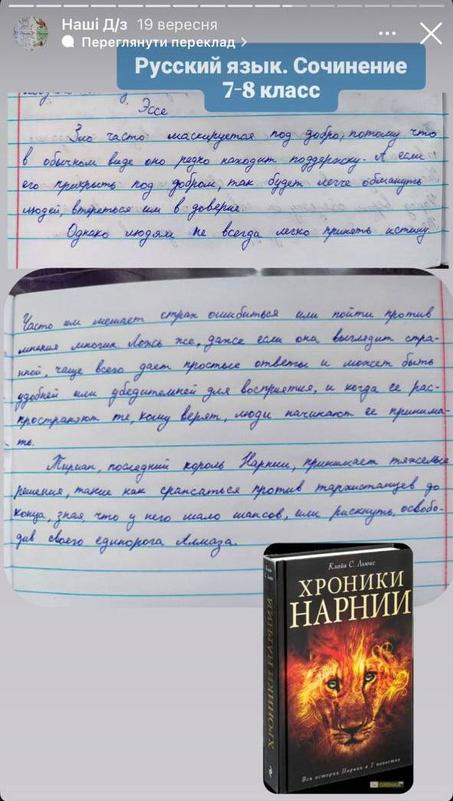 Наші Д/з 19 вересня
Переглянути переклад >
Русский язык. Сочинение
7-8 класс
Эссе
Зло часто маскируется под добро, потому что
в обычном виде оно редко находит поддержку. А если
его прикрыть под добром, так будет легче обмануть
людей, втереться им в доверие.
Однако людям не всегда легко принять истину.
Часто им мешает страх ошибиться или пойти против
мнения многих. Ложь же, даже если она выглядит стра-
нной, чаще всего дает простые ответы и может быть
удобней или убедительней для восприятия, и когда ее рас-
пространяют те, кому верят, люди начинают ее принима-
ть.
Тириан, последний король Нарнии, принимает тяжелые
решения, такие как сражаться против тархистанцев до
конца, зная, что у него мало шансов, или рискнуть, освобо-
див своего единорога Алмаза.
Клайв С. Льюис
ХРОНИКИ
НАРНИИ
ХРОНИКИ НАРНИИ
Вся история Нарнии в 7 повестях